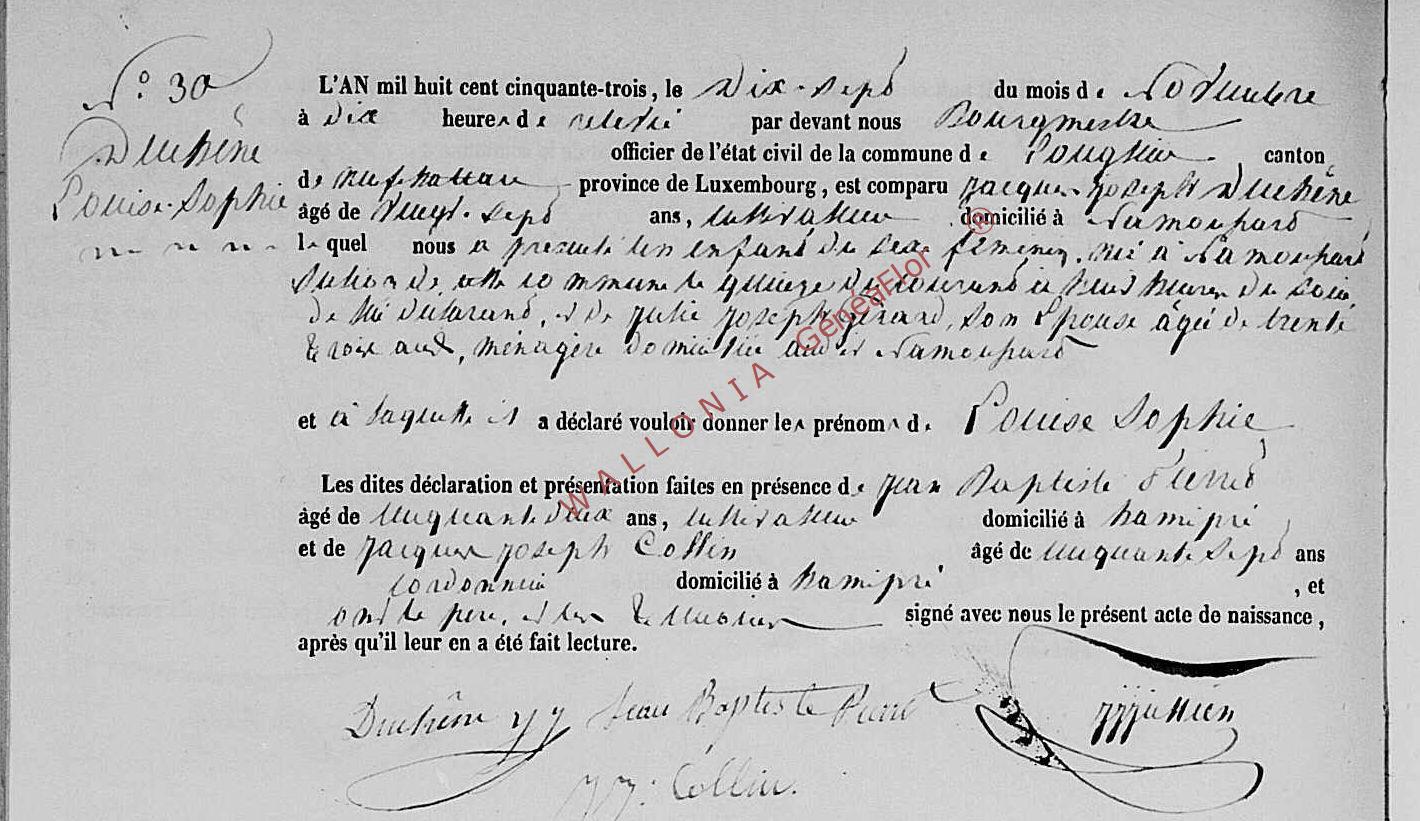 N.° 30
Duchêne
Louise Sophie
L'AN mil huit cent cinquante-trois, le Dix-Sept du mois de Novembre
à Dix heures de relevée par devant nous Bourgmestre
officier de l'état civil de la commune de Longlier, canton
de Neufchateau province de Luxembourg, est comparu Jacques Joseph Duchêne
âgé de vingt-sept ans, cultivateur domicilié à Namoussart
lequel nous a presenté un enfant du sexe féminin, né à Namoussart
Section de cette commune le quinze du courant à huit heures du soir,
de lui déclarant, et de Julie Joseph Gérard, son Epouse âgée de trente
trois ans, ménagère domiciliée audit Namoussart
et à laquelle il a déclaré vouloir donner les prénoms de Louise Sophie,
Les dites déclaration et présentation faites en présence de Jean Baptiste Pierret
âgé de cinquante deux ans, cultivateur domicilié à hamipré,
et de Jacques Joseph Collin âgé de cinquante sept ans
cordonnier domicilié à hamipré, et
ont le pere, et les témoins signé avec nous le présent acte de naissance,
après qu'il leur en a été fait lecture.
Duchêne JJ Jean Baptiste Pierret
JJ. Collin.
WALLONIA GénéaFlor ®